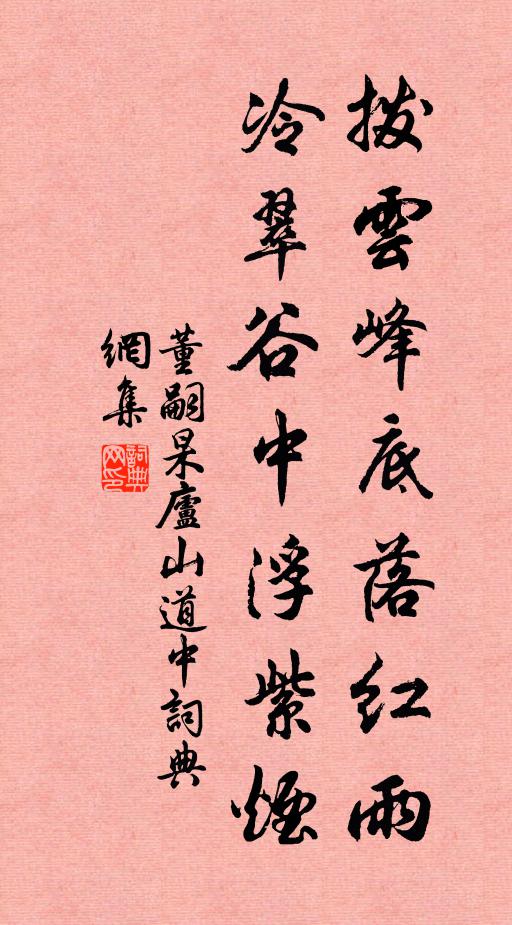 拨雲峰底落红雨
冷翠谷中浮紫煙
董嗣杲廬山道中詞典
網集
詞典網印